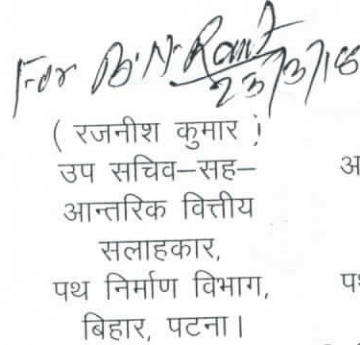 For B.N. Rant
23/3/18
( रजनीश कुमार )
उप सचिव–सह–
आन्तरिक वित्तीय
अ
सलाहकार,
पथ निर्माण विभाग,
बिहार, पटना।